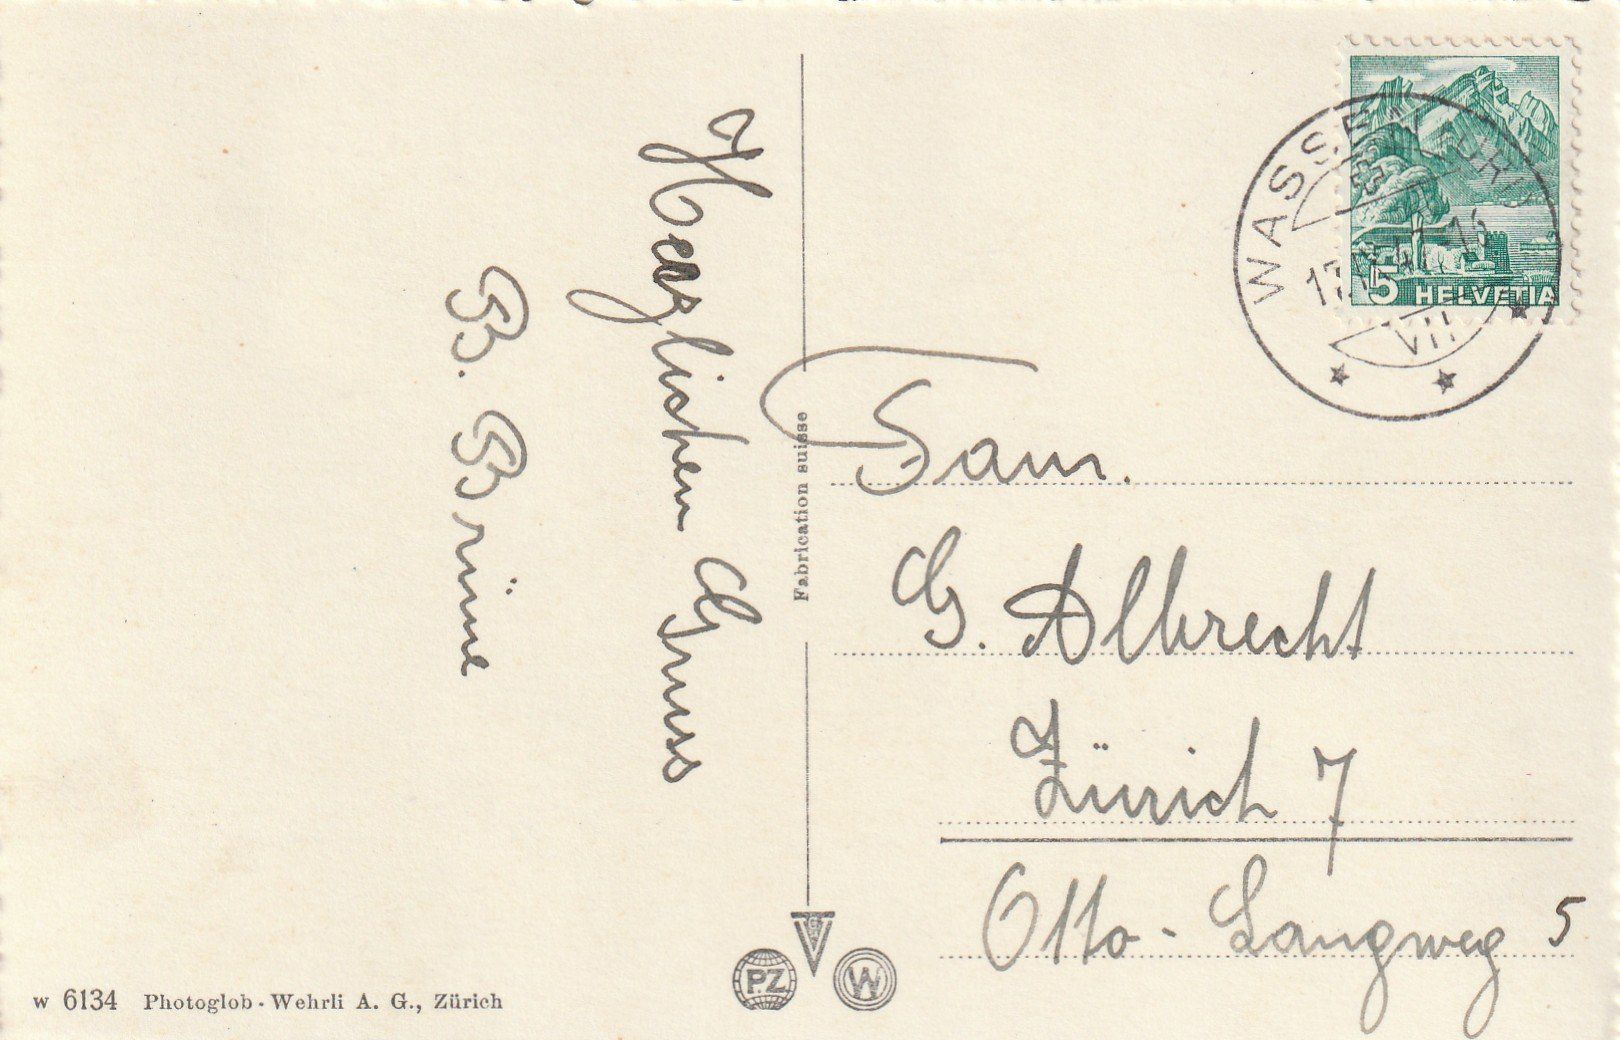 Herzlichen Gruss
B. Brüne
Fabrication suisse
WASSEN (URI)
VII
5 HELVETIA
Fam.
G. Albrecht
Zürich 7
Otto-Langweg 5
P.Z
W
W 6134 Photoglob-Wehrli A. G., Zürich